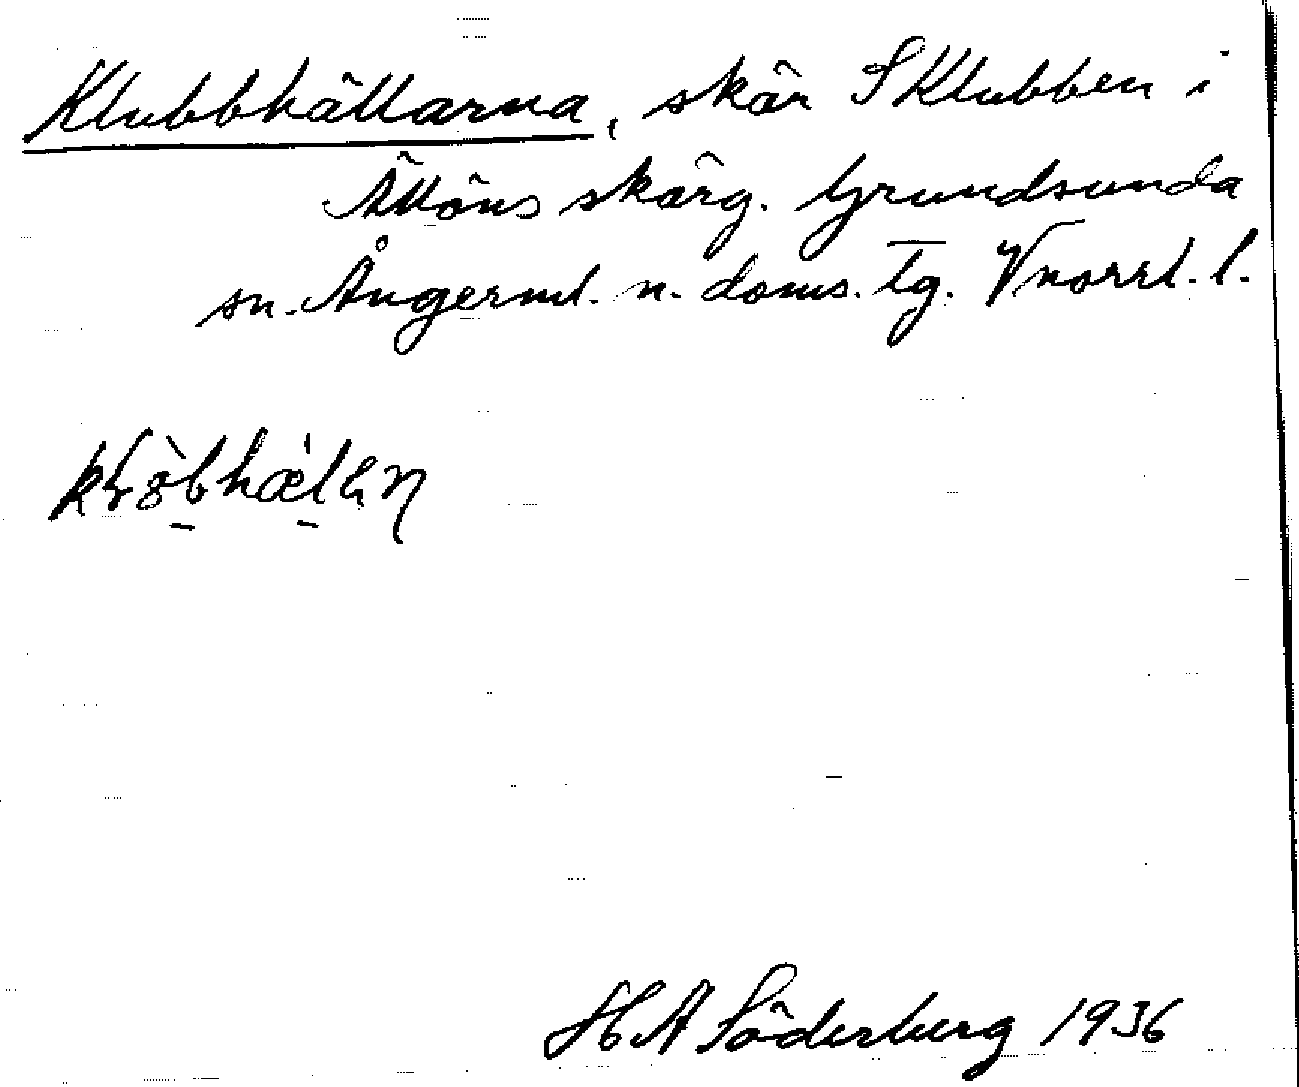 Klubbhällarna, skär S Klubben i
Ällöns skärg. Grundsunda
sn. Ångerml. n. doms. tg. Vnorrl. l.
H A Söderberg 1936